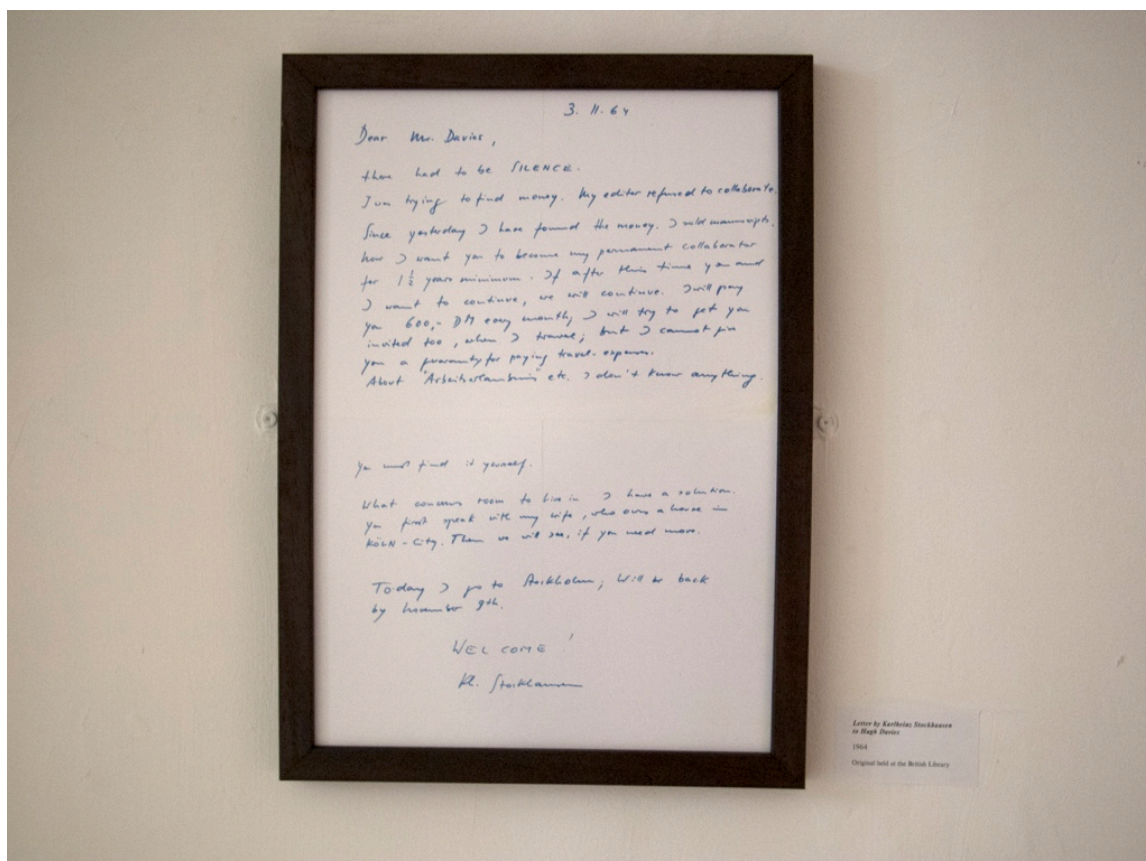 3. 11. 64
Dear Mr. Davies,
there had to be SILENCE.
I was trying to find money. My editor refused to collaborate.
Since yesterday I have found the money. I sold manuscripts.
Now I want you to become my permanent collaborator
for 1½ years minimum. If after this time you and
I want to continue, we will continue. I will pay
you 600,- DM every month; I will try to get you
invited too, when I travel; but I cannot give
you a guaranty for paying travel-expenses.
About "Arbeitserlaubnis" etc. I don't know anything.
You must find it yourself.
What concerns room to live in I have a solution.
You first speak with my wife, who owns a house in
KÖLN-City. Then we will see, if you need more.
Today I go to Stockholm; will be back
by November 9th.
WELCOME!
Kl. Stockhausen
Letter by Karlheinz Stockhausen
to Hugh Davies
1964
Original held at the British Library